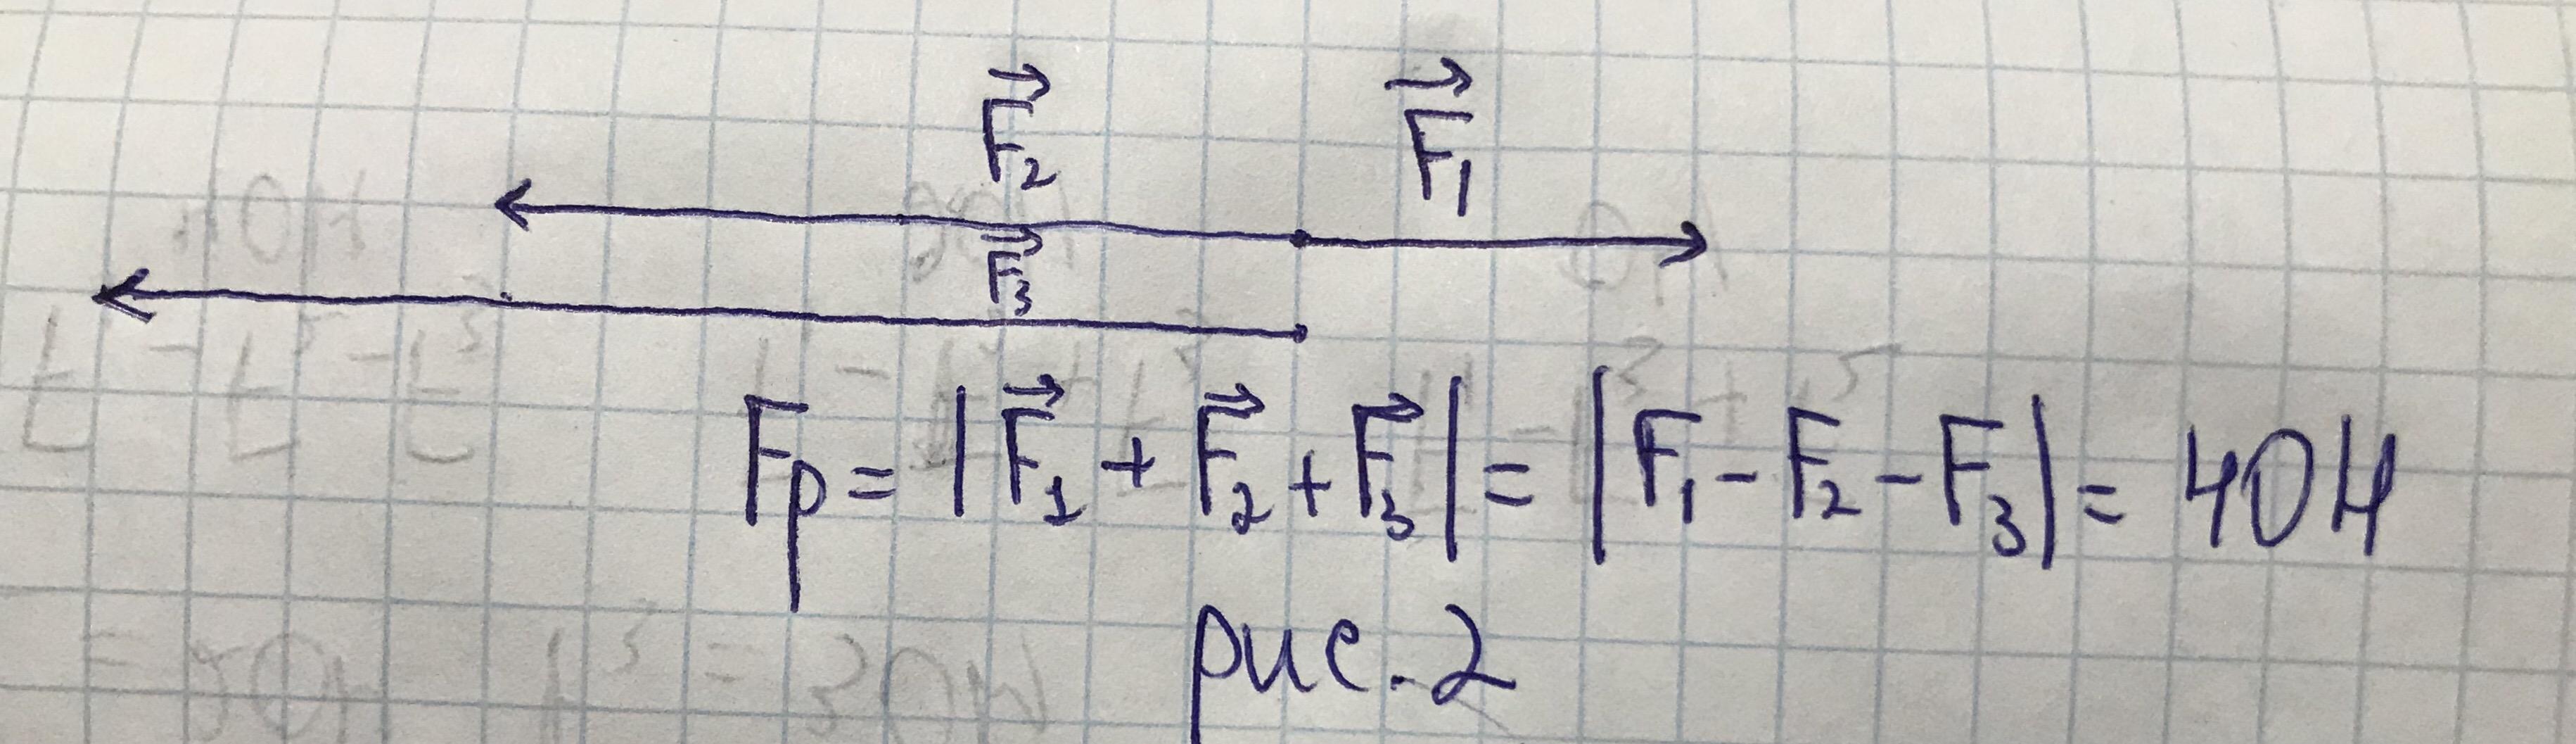 F⃗₂ F⃗₁
F⃗₃
Fр = |F⃗₁ + F⃗₂ + F⃗₃| = |F₁ - F₂ - F₃| = 40Н
рис. 2